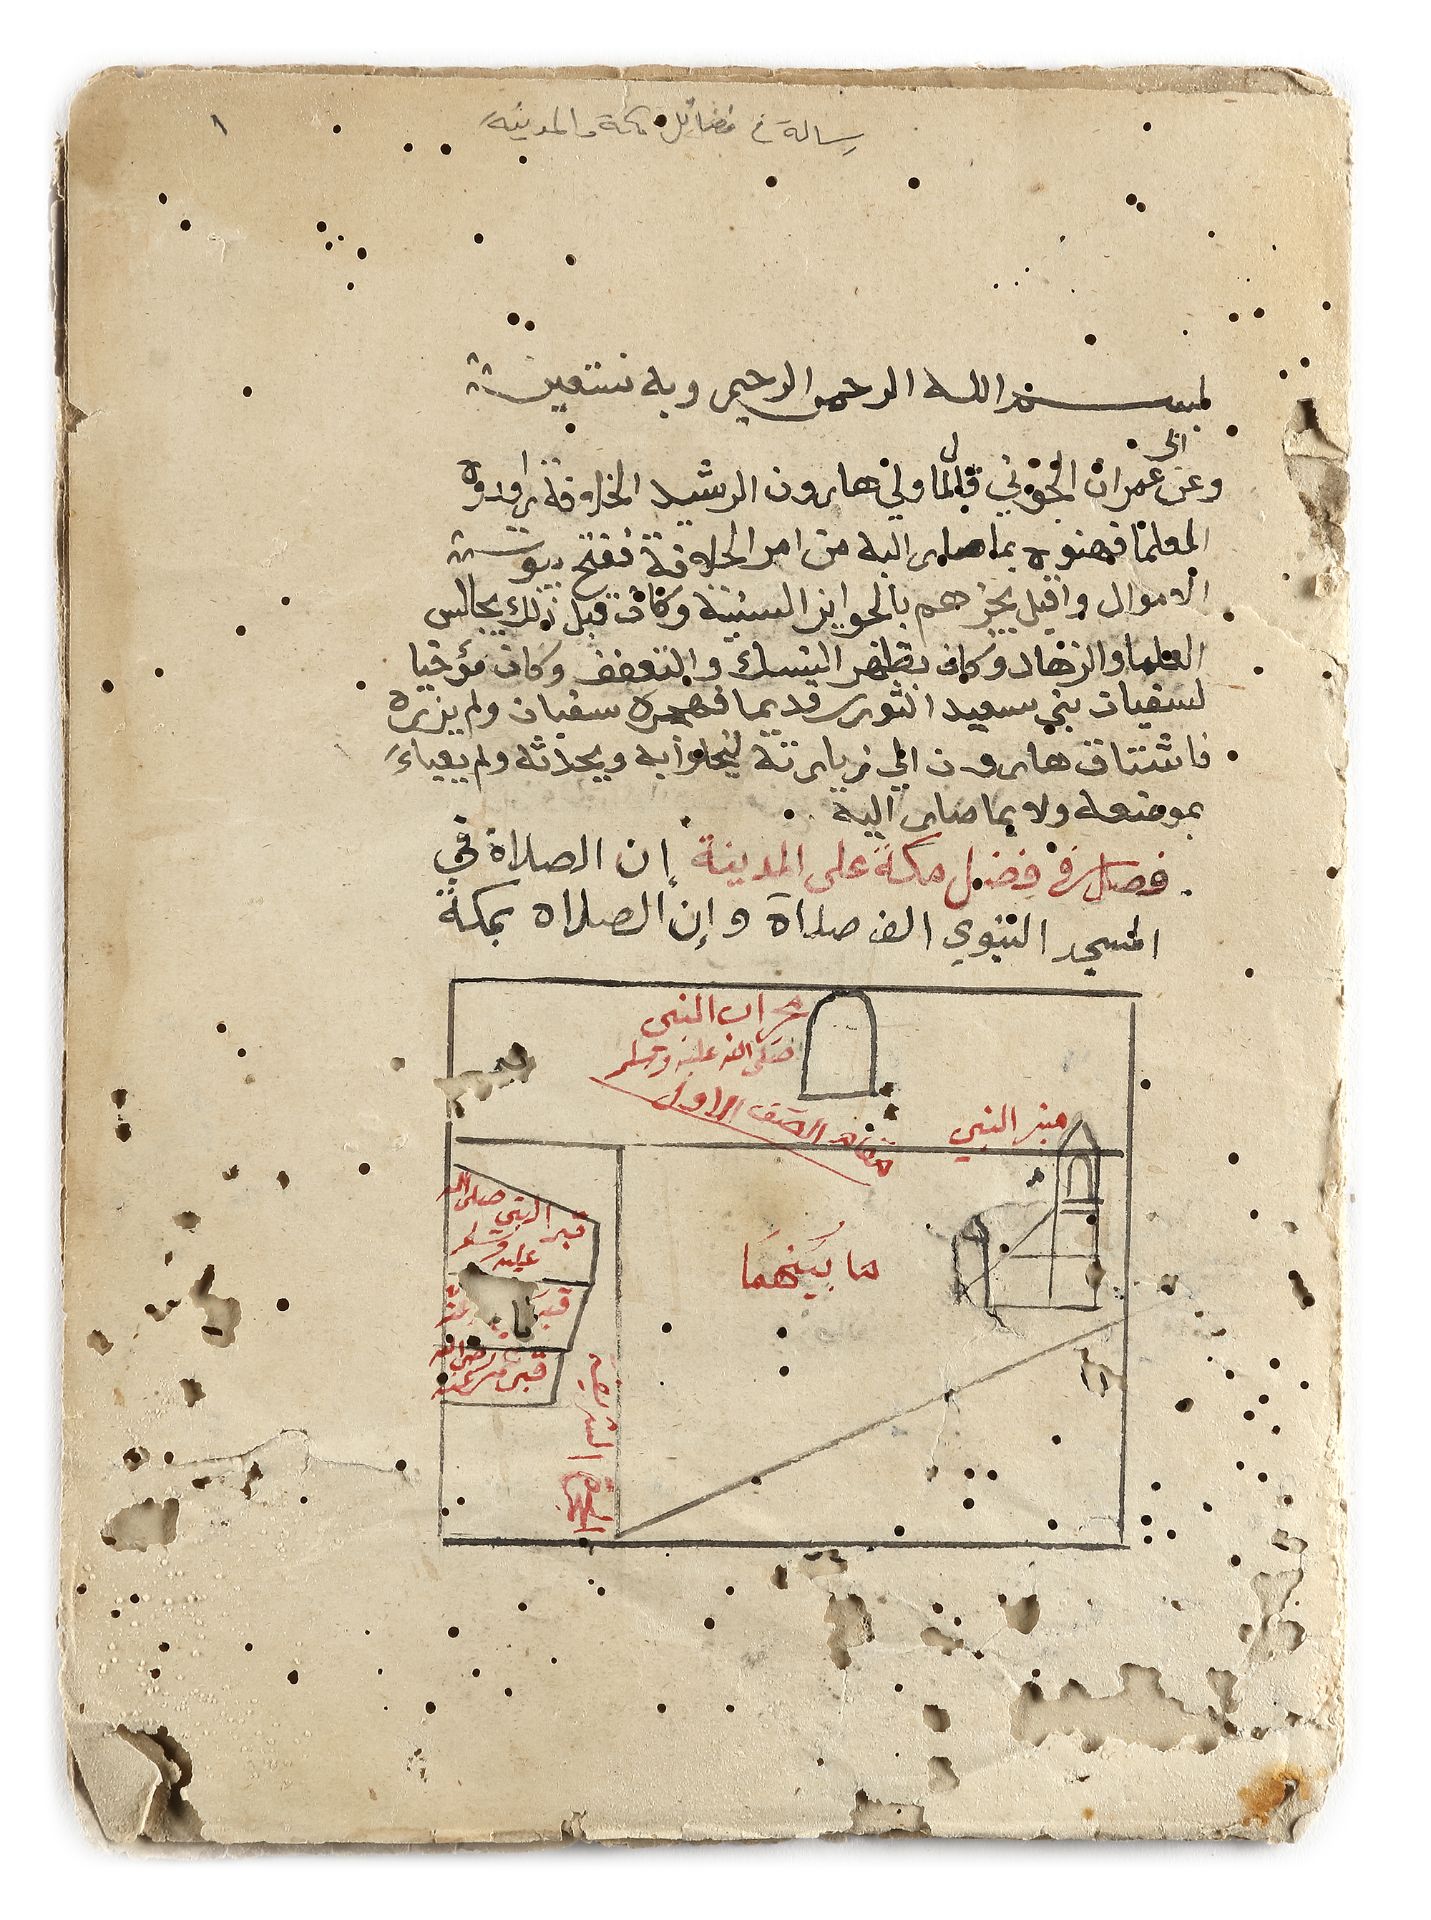 رسالة في فضائل مكة والمدينة
١
بسم الله الرحمن الرحيم وبه نستعين
ابي
وعن عمران الجوني قال لما ولي هارون الرشيد الخلافة
العلما فهنوه بما صار اليه من امر الخلافة ففتح بيوت
الاموال واقبل يجيزهم بالجوايز السنية وكان قبل ذلك يجالس
العلما والزهاد وكان يظهر النسك والتعفف وكان مؤخيا
لسفيان بني سعيد الثوري قديما فهجره سفيان ولم يزيره
فاشتاق هارون الي زيارته ويحدثه ولم يعباء
بموضعه ولا بما صار اليه
فصل في فضل مكة على المدينة إن الصلاة في
المسجد النبوي الف صلاة وإن الصلاه بمكة
محراب النبي
صلى الله عليه وسلم
الصف الاول
منبر النبي
ما بينهما
قبر النبي صلى الله
عليه وسلم
قبر
قبر عمر رضي الله عنه
الحجرة الشريفة